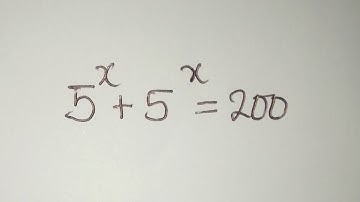 5^x + 5^x = 200